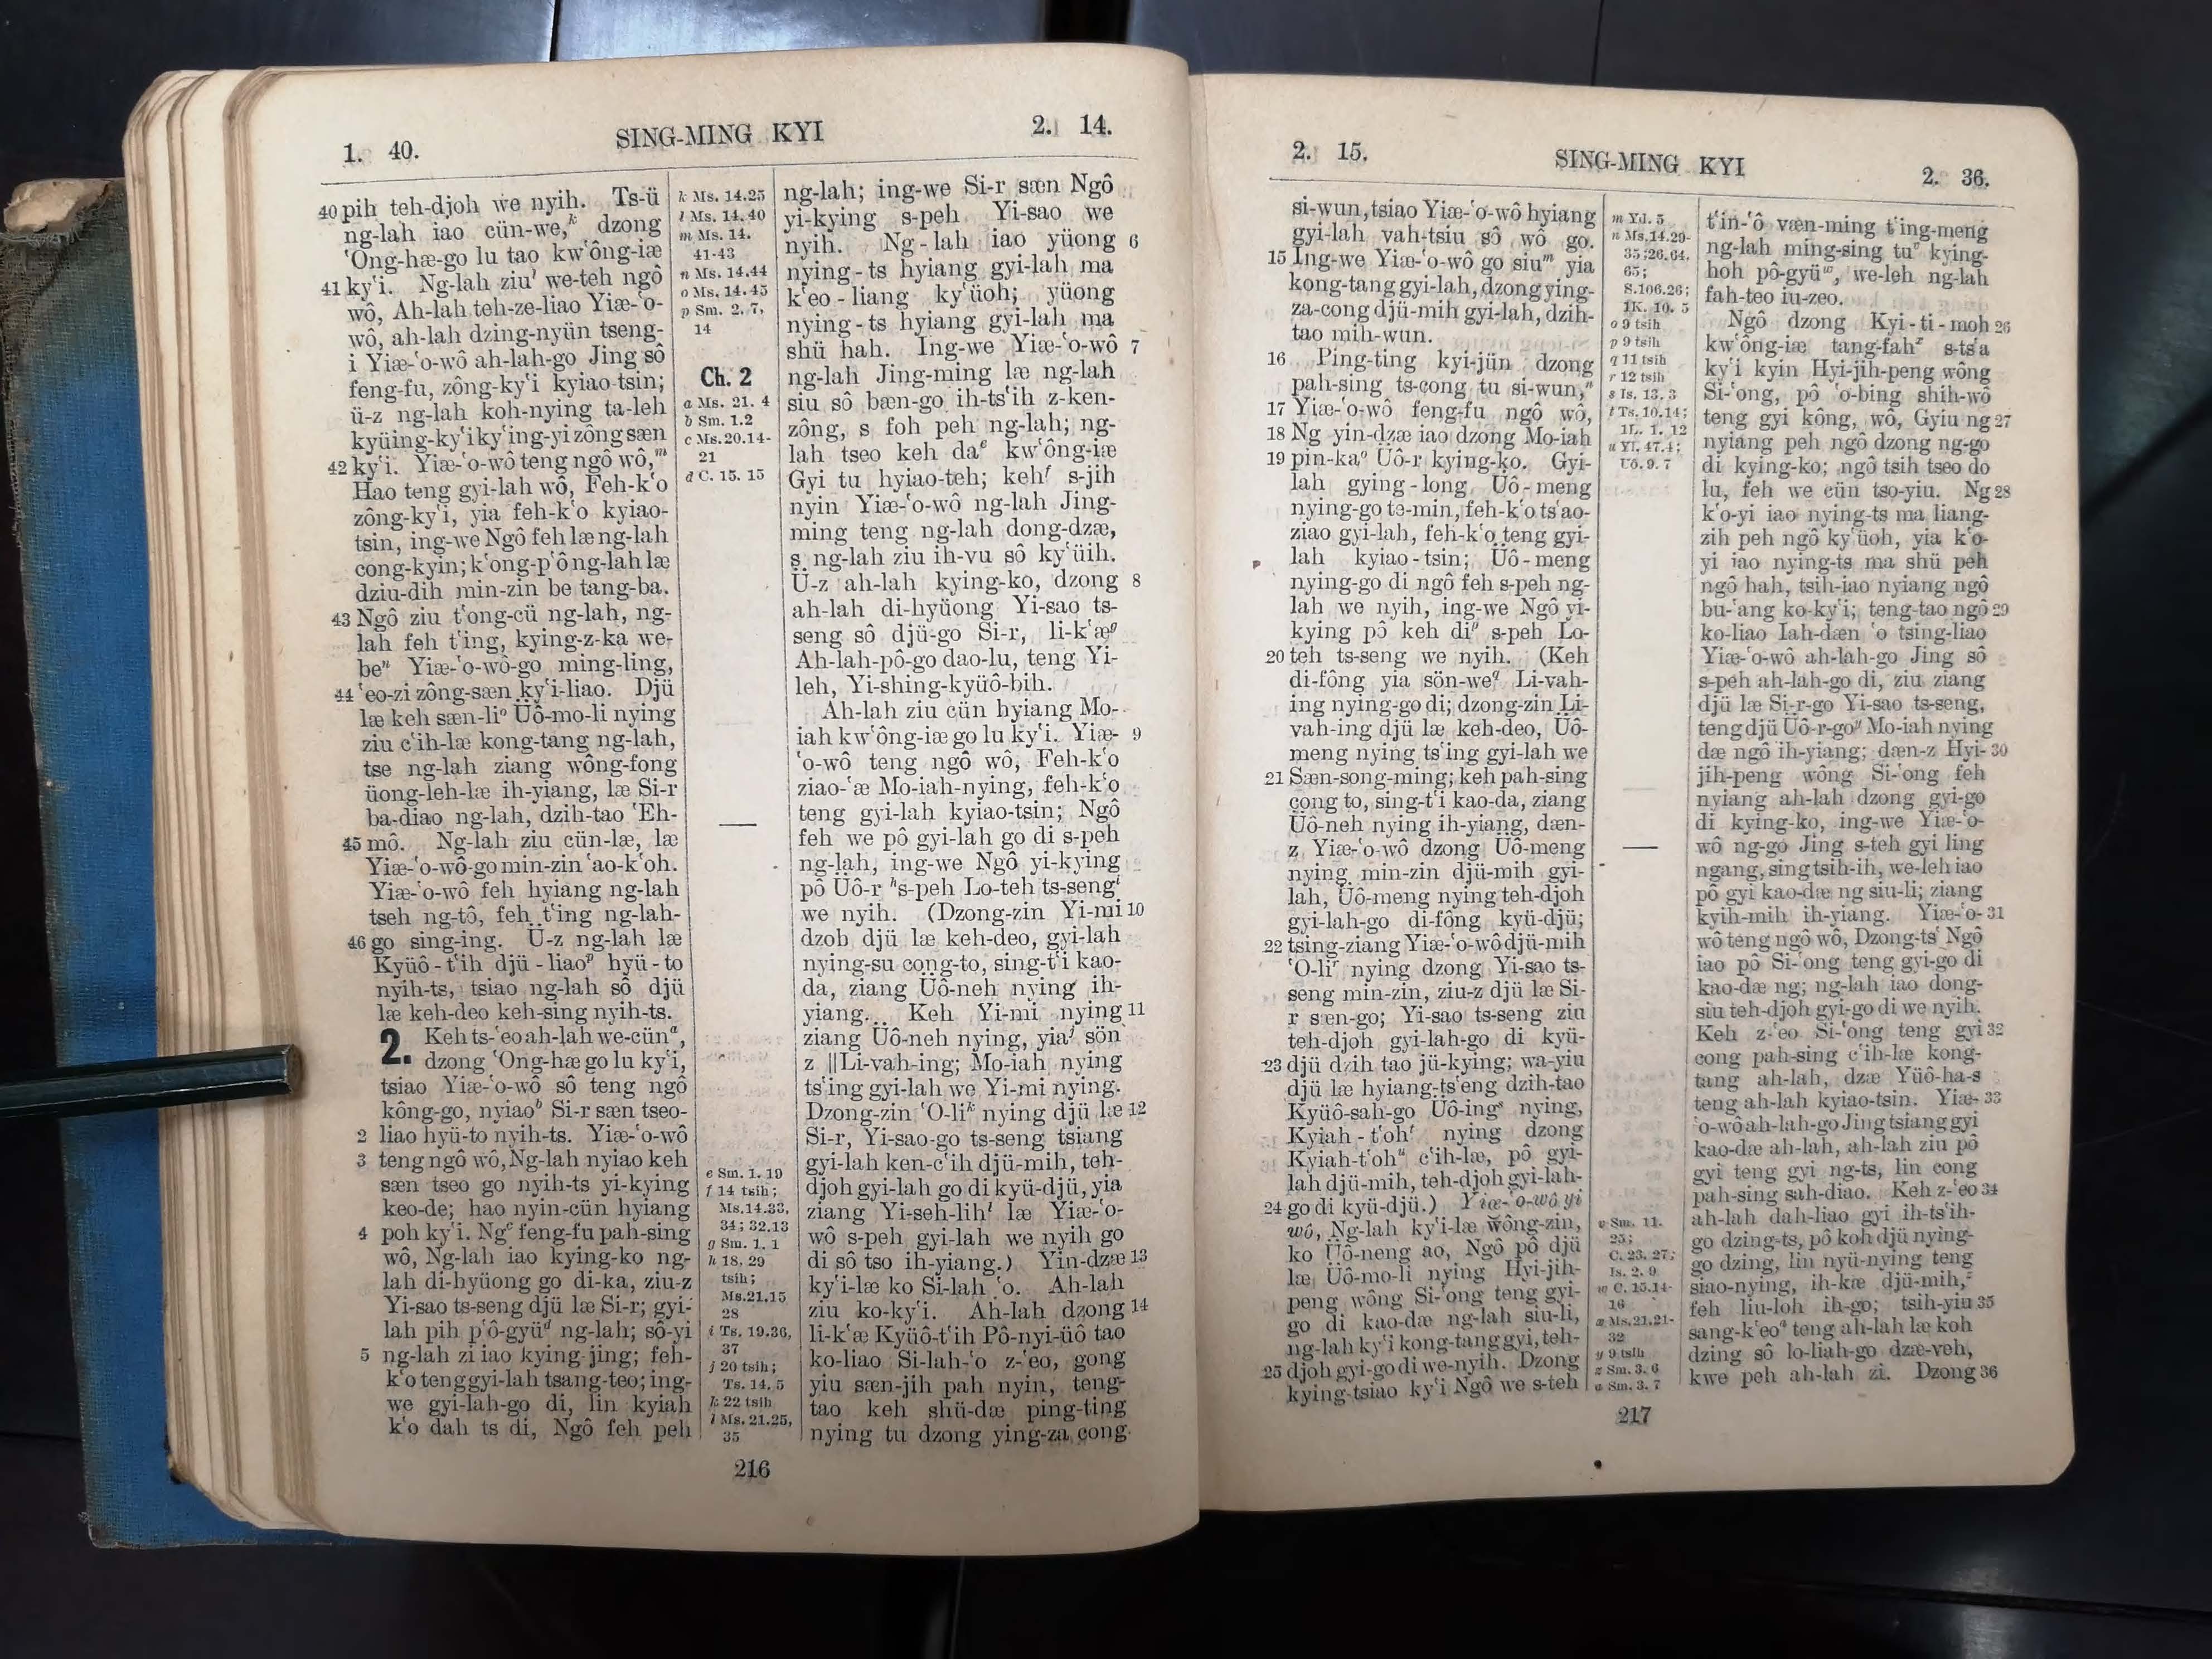 1. 40.
SING-MING KYI
2. 14.
40 pih teh-djoh we nyih. Ts-ü
ng-lah iao cün-we,ᵏ dzong
ʻOng-hæ-go lu tao kwʻông-iæ
41 kyʻi. Ng-lah ziuˡ we-teh ngô
wô, Ah-lah teh-ze-liao Yiæ-ʻo-
wô, ah-lah dzing-nyün tseng-
i Yiæ-ʻo-wô ah-lah-go Jing sô
feng-fu, zông-kyʻi kyiao-tsin;
ü-z ng-lah koh-nying ta-leh
kyüing-kyʻi kyʻing-yi zông sæn
42 kyʻi. Yiæ-ʻo-wô teng ngô wô,ᵐ
Hao teng gyi-lah wô, Feh-kʻo
zông-kyʻi, yia feh-kʻo kyiao-
tsin, ing-we Ngô feh læ ng-lah
cong-kyin; kʻong-pʻô ng-lah læ
dziu-dih min-zin be tang-ba.
43 Ngô ziu tʻong-cü ng-lah, ng-
lah feh tʻing, kying-z-ka we-
beⁿ Yiæ-ʻo-wô-go ming-ling,
44 ʻeo-zi zông-sæn kyʻi-liao. Djü
læ keh sæn-liᵒ Üô-mo-li nying
ziu cʻih-læ kong-tang ng-lah,
tse ng-lah ziang wông-fong
üong-leh-læ ih-yiang, læ Si-r
ba-diao ng-lah, dzih-tao ʻEh-
45 mô. Ng-lah ziu cün-læ, læ
Yiæ-ʻo-wô-go min-zin ʻao-kʻoh.
Yiæ-ʻo-wô feh hyiang ng-lah
tseh ng-tô, feh tʻing ng-lah-
46 go sing-ing. Ü-z ng-lah læ
Kyüô-tʻih djü-liaoᵖ hyü-to
nyih-ts, tsiao ng-lah sô djü
læ keh-deo keh-sing nyih-ts.
2. Keh ts-ʻeo ah-lah we-cünᵃ,
dzong ʻOng-hæ go lu kyʻi,
tsiao Yiæ-ʻo-wô sô teng ngô
kông-go, nyiaoᵇ Si-r sæn tseo-
2 liao hyü-to nyih-ts. Yiæ-ʻo-wô
3 teng ngô wô, Ng-lah nyiao keh
sæn tseo go nyih-ts yi-kying
keo-de; hao nyin-cün hyiang
4 poh kyʻi. Ngᶜ feng-fu pah-sing
wô, Ng-lah iao kying-ko ng-
lah di-hyüong go di-ka, ziu-z
Yi-sao ts-seng djü læ Si-r; gyi-
lah pih pʻô-gyüᵈ ng-lah; sô-yi
5 ng-lah zi iao kying-jing; feh-
kʻo teng gyi-lah tsang-teo; ing-
we gyi-lah-go di, lin kyiah
kʻo dah ts di, Ngô feh peh
k Ms. 14.25
l Ms. 14.40
m Ms. 14.
41-43
n Ms. 14.44
o Ms. 14.45
p Sm. 2. 7,
14
Ch. 2
a Ms. 21. 4
b Sm. 1.2
c Ms.20.14-
21
d C. 15. 15
e Sm. 1. 19
f 14 tsih;
Ms.14.33,
34; 32.13
g Sm. 1. 1
h 18. 29
tsih;
Ms.21.15
28
i Ts. 19.36,
37
j 20 tsih;
Ts. 14. 5
k 22 tsih
l Ms. 21.25,
35
ng-lah; ing-we Si-r sæn Ngô
yi-kying s-peh Yi-sao we
nyih. Ng-lah iao yüong 6
nying-ts hyiang gyi-lah ma
kʻeo-liang kyʻüoh; yüong
nying-ts hyiang gyi-lah ma
shü hah. Ing-we Yiæ-ʻo-wô 7
ng-lah Jing-ming læ ng-lah
siu sô bæn-go ih-tsʻih z-ken-
zông, s foh peh ng-lah; ng-
lah tseo keh daᵉ kwʻông-iæ
Gyi tu hyiao-teh; kehᶠ s-jih
nyin Yiæ-ʻo-wô ng-lah Jing-
ming teng ng-lah dong-dzæ,
s ng-lah ziu ih-vu sô kyʻüih.
Ü-z ah-lah kying-ko, dzong 8
ah-lah di-hyüong Yi-sao ts-
seng sô djü-go Si-r, li-kʻæᵍ
Ah-lah-pô-go dao-lu, teng Yi-
leh, Yi-shing-kyüô-bih.
Ah-lah ziu cün hyiang Mo-
iah kwʻông-iæ go lu kyʻi. Yiæ- 9
ʻo-wô teng ngô wô, Feh-kʻo
ziao-ʻæ Mo-iah-nying, feh-kʻo
teng gyi-lah kyiao-tsin; Ngô
feh we pô gyi-lah go di s-peh
ng-lah, ing-we Ngô yi-kying
pô Üô-r ʰs-peh Lo-teh ts-sengⁱ
we nyih. (Dzong-zin Yi-mi 10
dzob djü læ keh-deo, gyi-lah
nying-su cong-to, sing-tʻi kao-
da, ziang Üô-neh nying ih-
yiang. Keh Yi-mi nying 11
ziang Üô-neh nying, yiaʲ sön
z ||Li-vah-ing; Mo-iah nying
tsʻing gyi-lah we Yi-mi nying.
Dzong-zin ʻO-liᵏ nying djü læ 12
Si-r, Yi-sao-go ts-seng tsiang
gyi-lah ken-cʻih djü-mih, teh-
djoh gyi-lah go di kyü-djü, yia
ziang Yi-seh-lihˡ læ Yiæ-ʻo-
wô s-peh gyi-lah we nyih go
di sô tso ih-yiang.) Yin-dzæ 13
kyʻi-læ ko Si-lah ʻo. Ah-lah
ziu ko-kyʻi. Ah-lah dzong 14
li-kʻæ Kyüô-tʻih Pô-nyi-üô tao
ko-liao Si-lah-ʻo z-ʻeo, gong
yiu sæn-jih pah nyin, teng-
tao keh shü-dæ ping-ting
nying tu dzong ying-za cong
216
2. 15.
SING-MING KYI
2. 36.
si-wun, tsiao Yiæ-ʻo-wô hyiang
gyi-lah vah-tsiu sô wô go.
15 Ing-we Yiæ-ʻo-wô go siuᵐ yia
kong-tang gyi-lah, dzong ying-
za-cong djü-mih gyi-lah, dzih-
tao mih-wun.
16 Ping-ting kyi-jün dzong
pah-sing ts-cong tu si-wun,ⁿ
17 Yiæ-ʻo-wô feng-fu ngô wô,
18 Ng yin-dzæ iao dzong Mo-iah
19 pin-kaᵒ Üô-r kying-ko. Gyi-
lah gying-long Üô-meng
nying-go te-min, feh-kʻo tsʻao-
ziao gyi-lah, feh-kʻo teng gyi-
lah kyiao-tsin; Üô-meng
nying-go di ngô feh s-peh ng-
lah we nyih, ing-we Ngô yi-
kying pô keh diᵖ s-peh Lo-
20 teh ts-seng we nyih. (Keh
di-fông yia sön-we𐞥 Li-vah-
ing nying-go di; dzong-zin Li-
vah-ing djü læ keh-deo, Üô-
meng nying tsʻing gyi-lah we
21 Sæn-song-ming; keh pah-sing
cong to, sing-tʻi kao-da, ziang
Üô-neh nying ih-yiang, dæn-
z Yiæ-ʻo-wô dzong Üô-meng
nying min-zin djü-mih gyi-
lah, Üô-meng nying teh-djoh
gyi-lah-go di-fông kyü-djü;
22 tsing-ziang Yiæ-ʻo-wô djü-mih
ʻO-liʳ nying dzong Yi-sao ts-
seng min-zin, ziu-z djü læ Si-
r sæn-go; Yi-sao ts-seng ziu
teh-djoh gyi-lah-go di kyü-
23 djü dzih tao jü-kying; wa-yiu
djü læ hyiang-tsʻeng dzih-tao
Kyüô-sah-go Üô-ingˢ nying,
Kyiah-tʻohᵗ nying dzong
Kyiah-tʻohᵘ cʻih-læ, pô gyi-
lah djü-mih, teh-djoh gyi-lah-
24 go di kyü-djü.) Yiæ-ʻo-wô yi
wô, Ng-lah kyʻi-læ wông-zin,
ko Üô-neng ao, Ngô pô djü
læ Üô-mo-li nying Hyi-jih-
peng wông Si-ʻong teng gyi-
go di kao-dæ ng-lah siu-li,
ng-lah kyʻi kong-tang gyi, teh-
25 djoh gyi-go di we-nyih. Dzong
kying-tsiao kyʻi Ngô we s-teh
m Yd. 5
n Ms.14.29-
35;26.64,
65;
S.106.26;
1K. 10. 5
o 9 tsih
p 9 tsih
q 11 tsih
r 12 tsih
s Is. 13. 3
t Ts. 10.14;
1L. 1. 12
u Yl. 47.4;
Üô. 9. 7
v Sm. 11.
25;
C. 23. 27;
Is. 2. 9
w C. 15.14-
16
x Ms.21.21-
32
y 9 tsih
z Sm. 3. 6
a Sm. 3. 7
tʻin-ʻô væn-ming tʻing-meng
ng-lah ming-sing tuᵛ kying-
hoh pô-gyüʷ, we-leh ng-lah
fah-teo iu-zeo.
Ngô dzong Kyi-ti-moh 26
kwʻông-iæ tang-fahˣ s-tsʻa
kyʻi kyin Hyi-jih-peng wông
Si-ʻong, pô ʻo-bing shih-wô
teng gyi kông, wô, Gyiu ng 27
nyiang peh ngô dzong ng-go
di kying-ko; ngô tsih tseo do
lu, feh we cün tso-yiu. Ng 28
kʻo-yi iao nying-ts ma liang-
zih peh ngô kyʻüoh, yia kʻo-
yi iao nying-ts ma shü peh
ngô hah, tsih-iao nyiang ngô
bu-ʻang ko-kyʻi; teng-tao ngô 29
ko-liao Iah-dæn ʻo tsing-liao
Yiæ-ʻo-wô ah-lah-go Jing sô
s-peh ah-lah-go di, ziu ziang
djü læ Si-r-go Yi-sao ts-seng,
teng djü Üô-r-goʸ Mo-iah nying
dæ ngô ih-yiang; dæn-z Hyi- 30
jih-peng wông Si-ʻong feh
nyiang ah-lah dzong gyi-go
di kying-ko, ing-we Yiæ-ʻo-
wô ng-go Jing s-teh gyi ling
ngang, sing tsih-ih, we-leh iao
pô gyi kao-dæ ng siu-li; ziang
kyih-mih ih-yiang. Yiæ-ʻo- 31
wô teng ngô wô, Dzong-tsʻ Ngô
iao pô Si-ʻong teng gyi-go di
kao-dæ ng; ng-lah iao dong-
siu teh-djoh gyi-go di we nyih.
Keh z-ʻeo Si-ʻong teng gyi 32
cong pah-sing cʻih-læ kong-
tang ah-lah, dzæ Yüô-ha-s
teng ah-lah kyiao-tsin. Yiæ- 33
ʻo-wô ah-lah-go Jing tsiang gyi
kao-dæ ah-lah, ah-lah ziu pô
gyi teng gyi ng-ts, lin cong
pah-sing sah-diao. Keh z-ʻeo 34
ah-lah dah-liao gyi ih-tsʻih-
go dzing-ts, pô koh djü nying-
go dzing, lin nyü-nying teng
siao-nying, ih-kæ djü-mih,ᶻ
feh liu-loh ih-go; tsih-yiu 35
sang-kʻeoᵃ teng ah-lah læ koh
dzing sô lo-liah-go dzæ-veh,
kwe peh ah-lah zi. Dzong 36
217